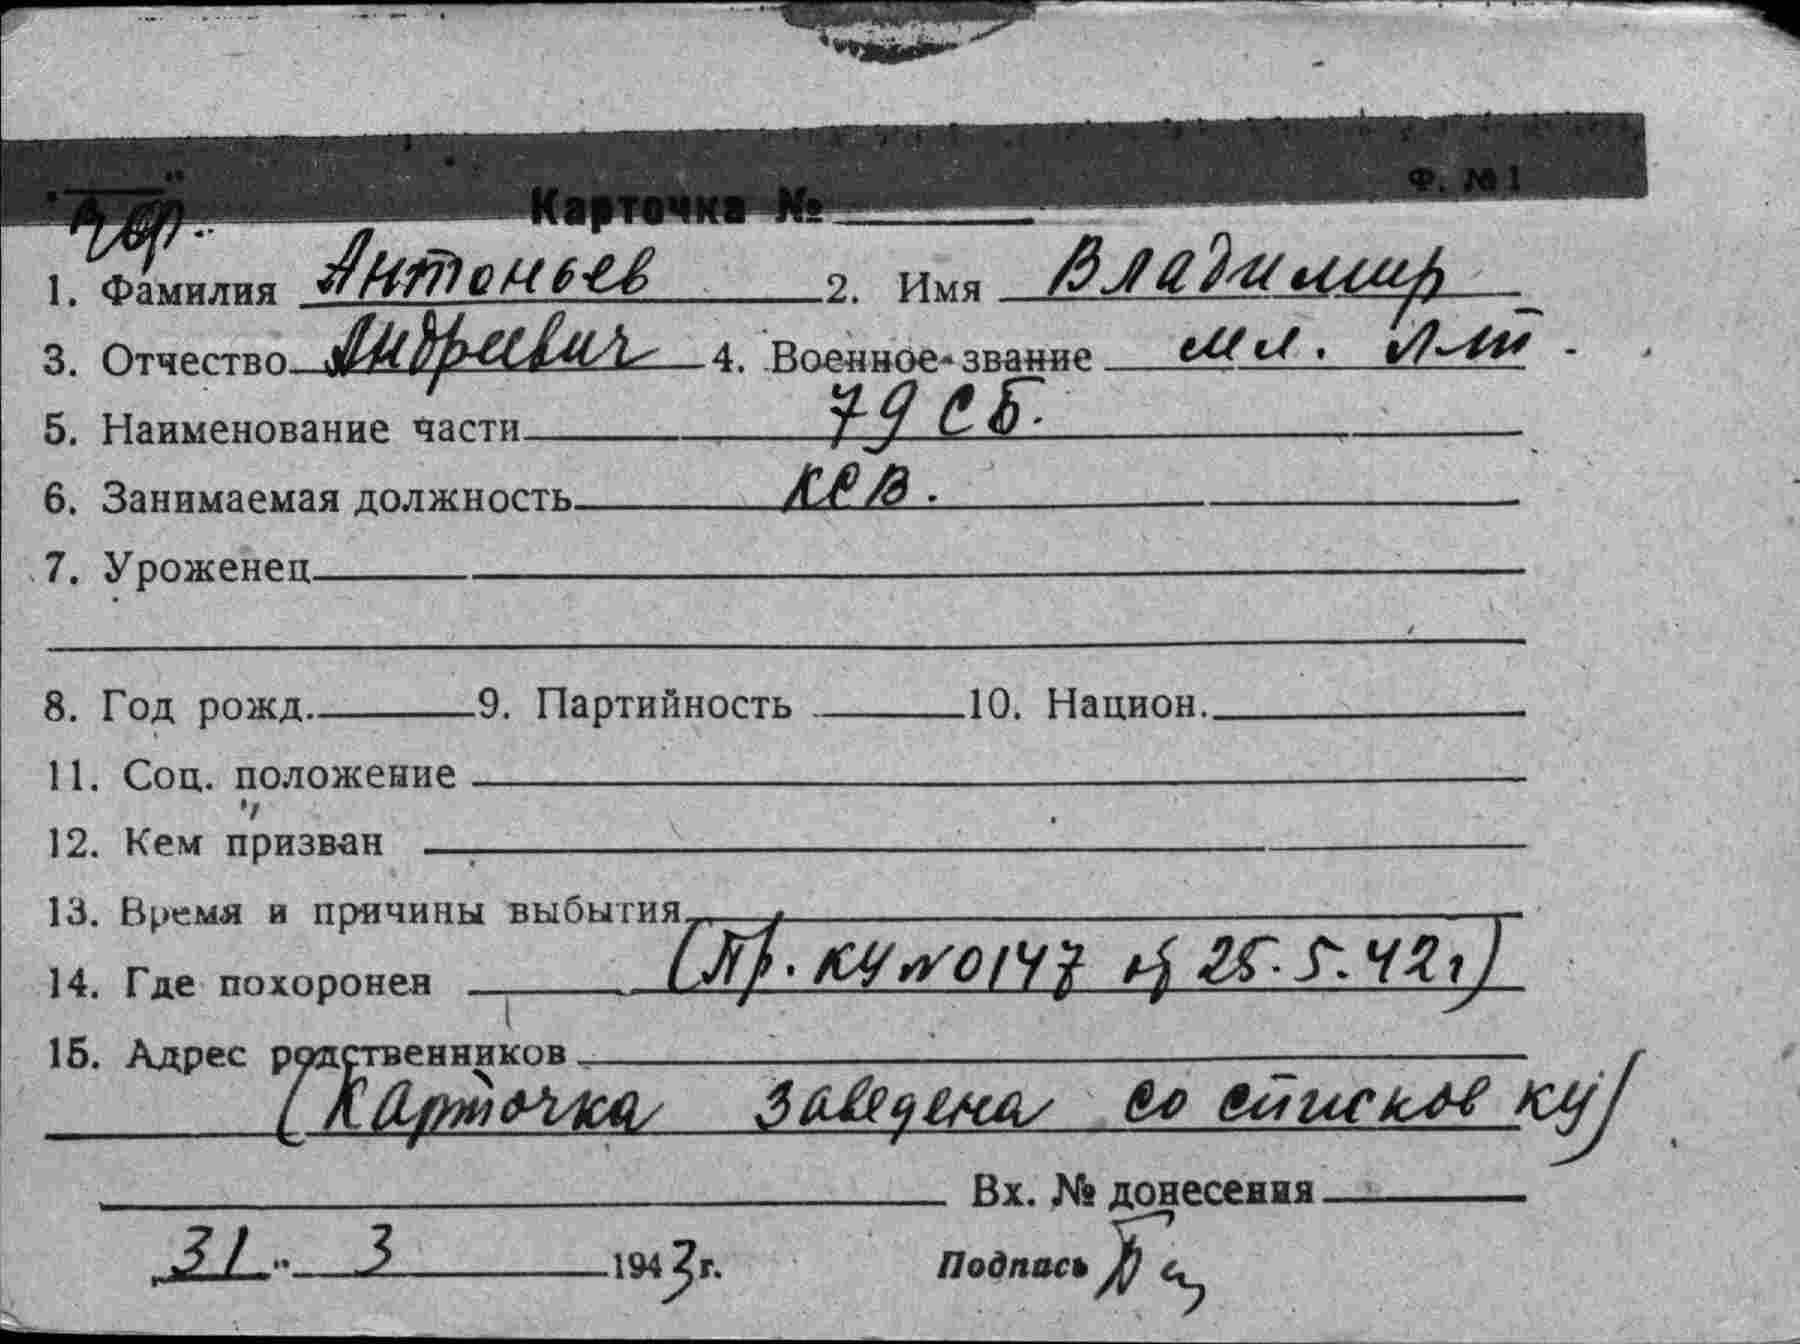 Ф. №1
Карточка №
1. Фамилия Антоньев 2. Имя Владимир
3. Отчество Андреевич 4. Военное звание мл. л-т.
5. Наименование части 79 СБ.
6. Занимаемая должность КСВ.
7. Уроженец
8. Год рожд. 9. Партийность 10. Национ.
11. Соц. положение
12. Кем призван
13. Время и причины выбытия
14. Где похоронен (Пр. КУ №0147 от 25.5.42г)
15. Адрес родственников
(Карточка заведена со списков КУ)
Вх. № донесения
31 3 1943г. Подпись